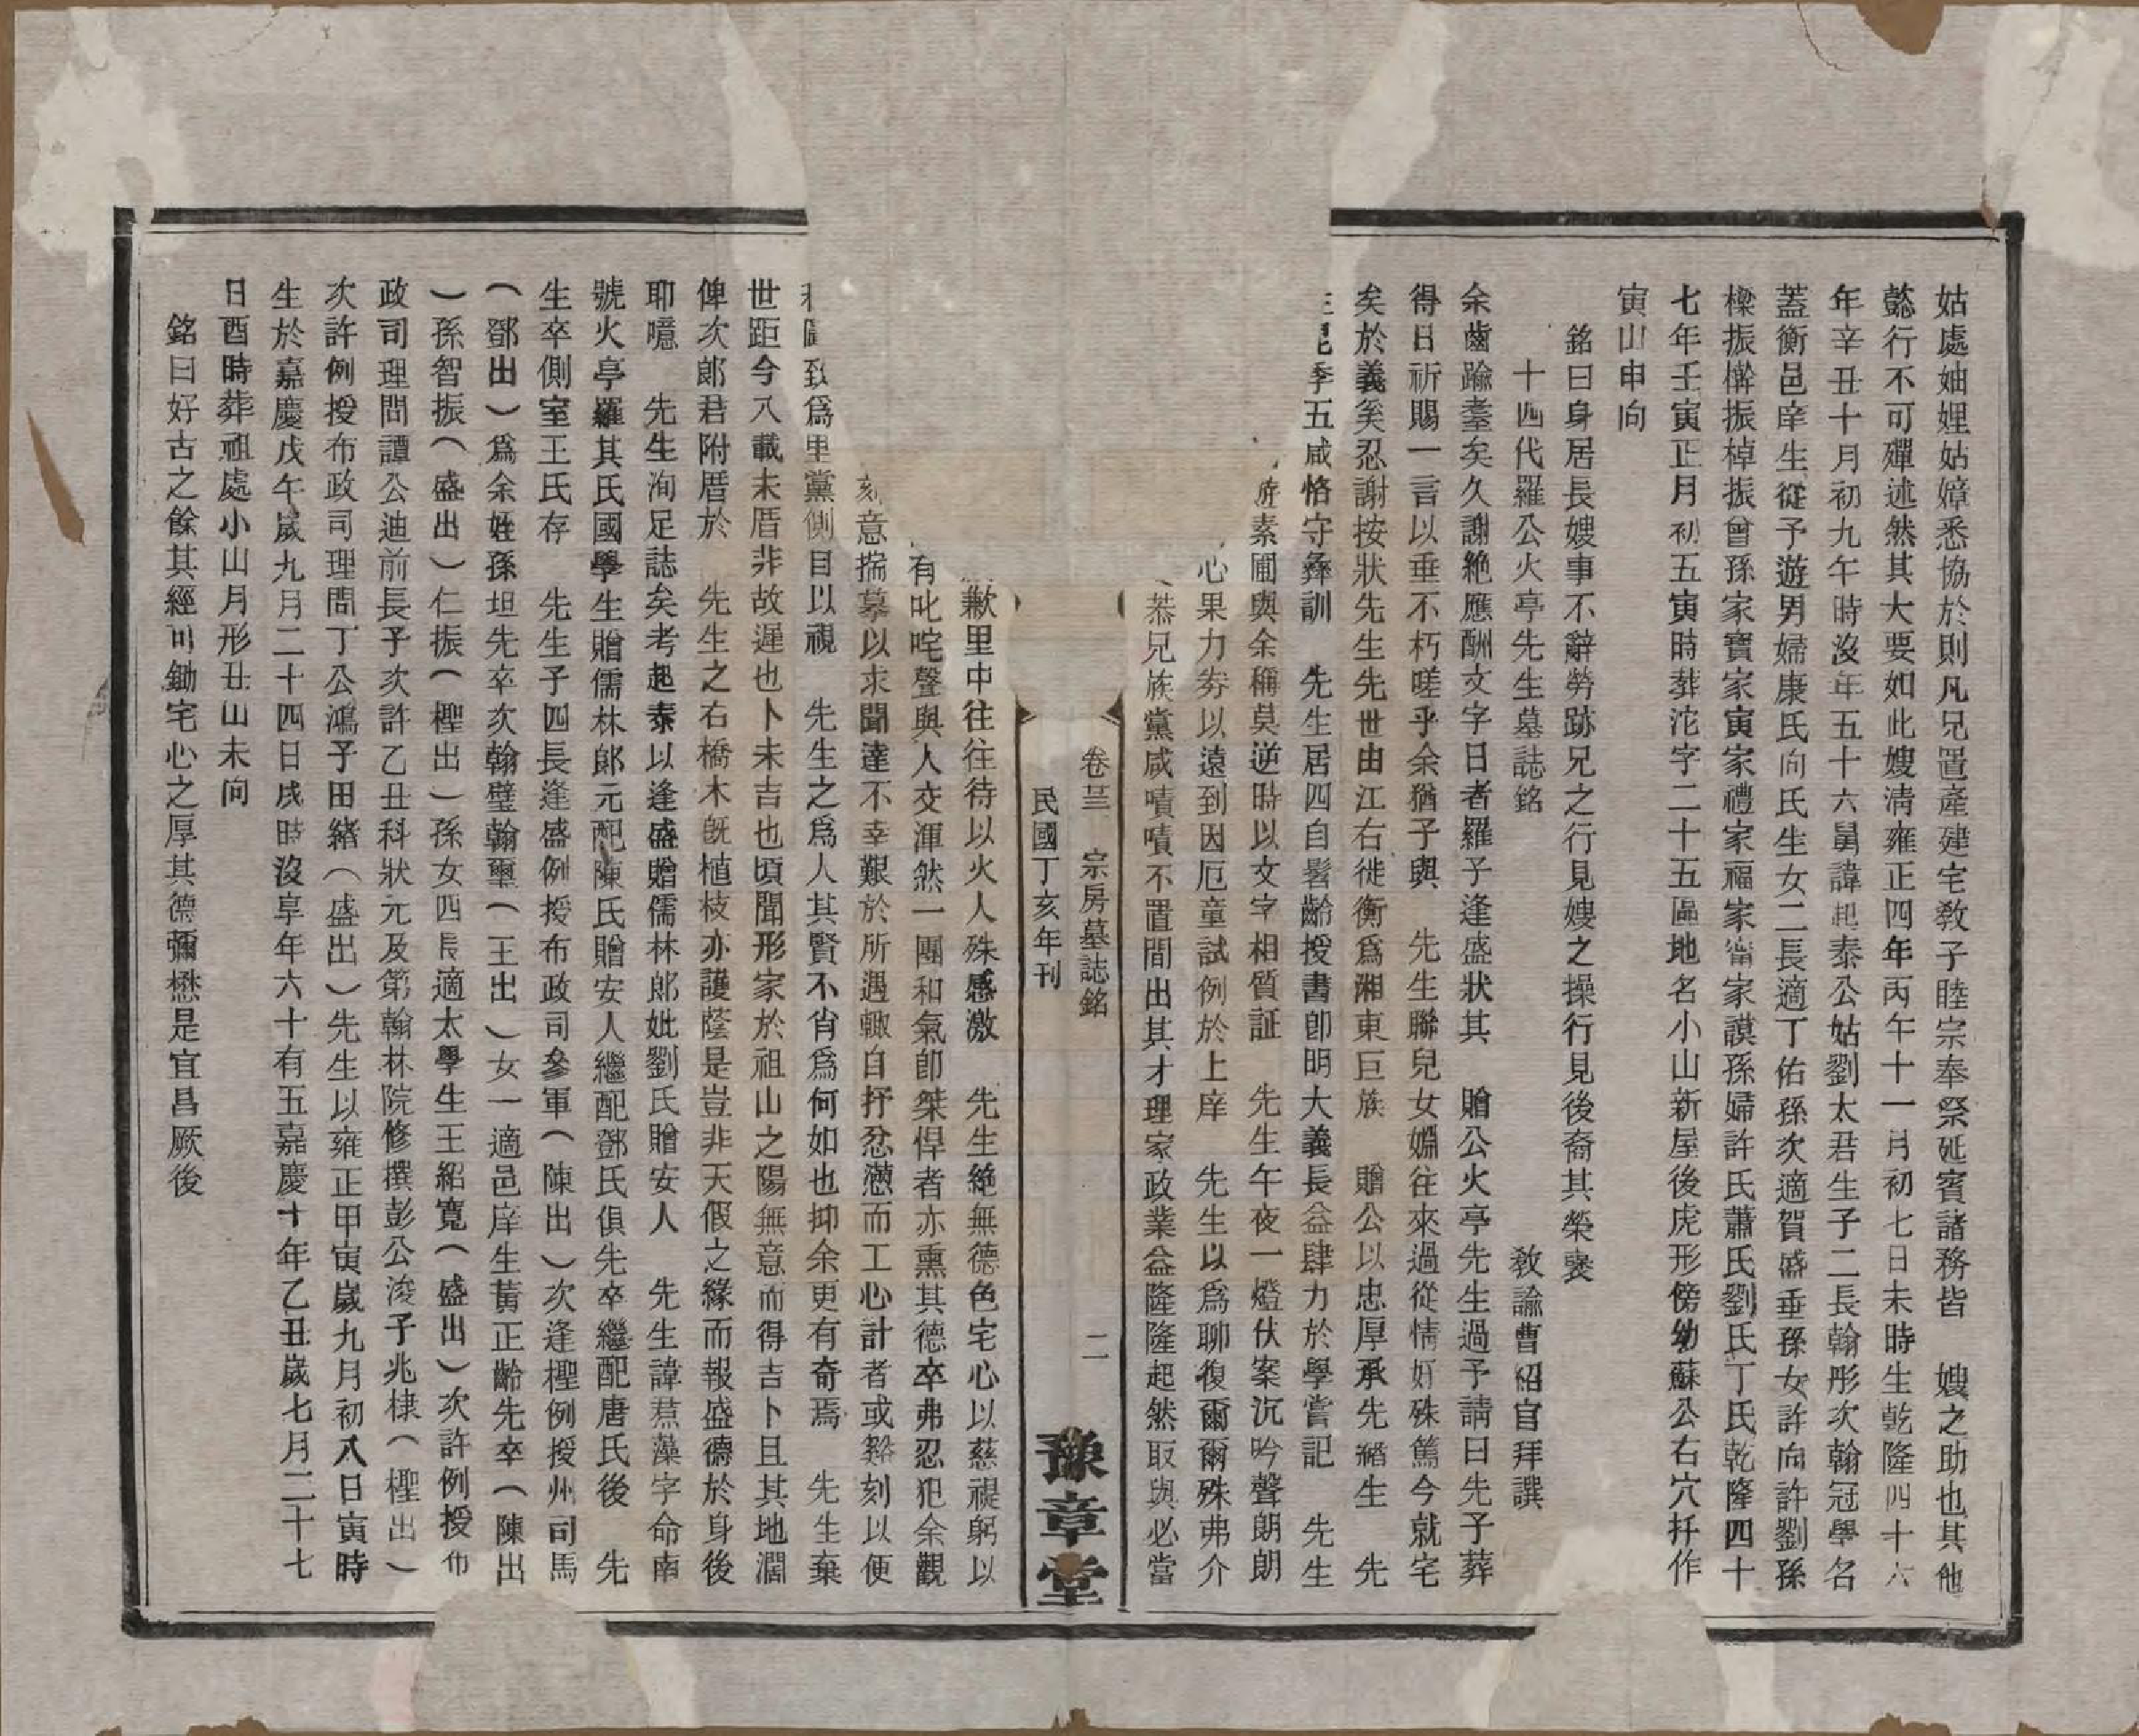 姑處妯娌姑嫜悉協於則凡兄置產建宅敎子睦宗奉祭延賓諸務皆　嫂之助也其他
懿行不可殫述然其大要如此嫂淸雍正四年丙午十一月初七日未時生乾隆四十六
年辛丑十月初九午時沒年五十六舅諱起泰公姑劉太君生子二長翰彤次翰冠學名
蓋衡邑庠生從予遊男婦康氏向氏生女二長適丁佑孫次適賀盛垂孫女許向許劉孫
樑振榦振棹振曾孫家寶家寅家禮家福家甯家謨孫婦許氏蕭氏劉氏丁氏乾隆四十
七年壬寅正月初五寅時葬沱字二十五區地名小山新屋後虎形傍幼蘇公右穴扦作
寅山申向
銘曰身居長嫂事不辭勞跡兄之行見嫂之操行見後裔其榮褒
十四代羅公火亭先生墓誌銘　敎諭曹紹官拜譔
余齒踰耋矣久謝絶應酬文字日者羅子逢盛狀其　贈公火亭先生過予請曰先子葬
得日祈賜一言以垂不朽嗟乎余猶子與　先生聯兒女婣往來過從情好殊篤今就宅
矣於義奚忍謝按狀先生先世由江右徙衡爲湘東巨族　贈公以忠厚承先緒生　先
昆季五咸恪守彝訓　先生居四自髫齡授書卽明大義長益肆力於學嘗記　先生
素圃與余稱莫逆時以文字相質証　先生午夜一燈伏案沉吟聲朗朗
心果力劵以遠到因厄童試例於上庠　先生以爲聊復爾爾殊弗介
恭兄族黨咸嘖嘖不置間出其才理家政業益隆隆起然取與必當
卷三　宗房墓誌銘　二
民國丁亥年刊
豫章堂
歉里中往往待以火人殊感激　先生絶無德色宅心以慈禔躬以
有叱咤聲與人交渾然一團和氣卽桀悍者亦熏其德卒弗忍犯余觀
刻意揣摹以求聞達不幸艱於所遇輒自抒忿懣而工心計者或谿刻以便
致爲里黨側目以視　先生之爲人其賢不肖爲何如也抑余更有奇焉　先生棄
世距今八載未厝非故遲也卜未吉也頃聞形家於祖山之陽無意而得吉卜且其地濶
俾次郞君附厝於　先生之右橋木旣植枝亦護蔭是豈非天假之緣而報盛德於身後
耶噫　先生洵足誌矣考起泰以逢盛贈儒林郞妣劉氏贈安人　先生諱焄藻字命南
號火亭羅其氏國學生贈儒林郞元配陳氏贈安人繼配鄧氏俱先卒繼配唐氏後　先
生卒側室王氏存　先生子四長逢盛例授布政司參軍（陳出）次逢樫例授州司馬
（鄧出）爲余姪孫坦先卒次翰璧翰璽（王出）女一適邑庠生黃正齡先卒（陳出
）孫智振（盛出）仁振（樫出）孫女四長適太學生王紹寬（盛出）次許例授布
政司理問譚公迪前長予次許乙丑科狀元及第翰林院修撰彭公浚子兆棣（樫出）
次許例授布政司理問丁公鴻子田緒（盛出）先生以雍正甲寅歲九月初八日寅時
生於嘉慶戊午歲九月二十四日戌時沒享年六十有五嘉慶十年乙丑歲七月二十七
日酉時葬祖處小山月形丑山未向
銘曰好古之餘其經可鋤宅心之厚其德彌懋是宜昌厥後